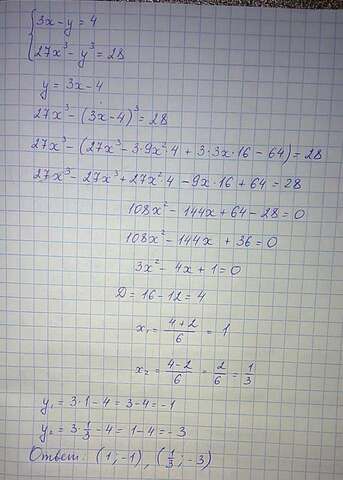 {3x - y = 4
27x³ - y³ = 28
y = 3x - 4
27x³ - (3x - 4)³ = 28
27x³ - (27x³ - 3·9x²·4 + 3·3x·16 - 64) = 28
27x³ - 27x³ + 27x²·4 - 9x·16 + 64 = 28
108x² - 144x + 64 - 28 = 0
108x² - 144x + 36 = 0
3x² - 4x + 1 = 0
D = 16 - 12 = 4
x₁ = (4+2)/6 = 1
x₂ = (4-2)/6 = 2/6 = 1/3
y₁ = 3·1 - 4 = 3 - 4 = -1
y₂ = 3·1/3 - 4 = 1 - 4 = -3
Ответ: (1; -1), (1/3; -3)